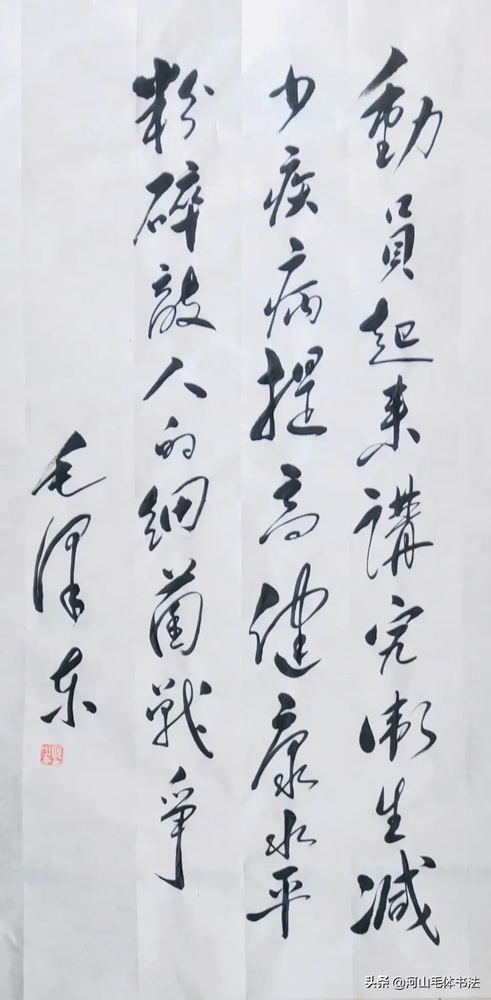 動員起来講究衛生減
少疾病提高健康水平
粉碎敵人的細菌戰爭
毛澤东
头条 @河山毛体书法